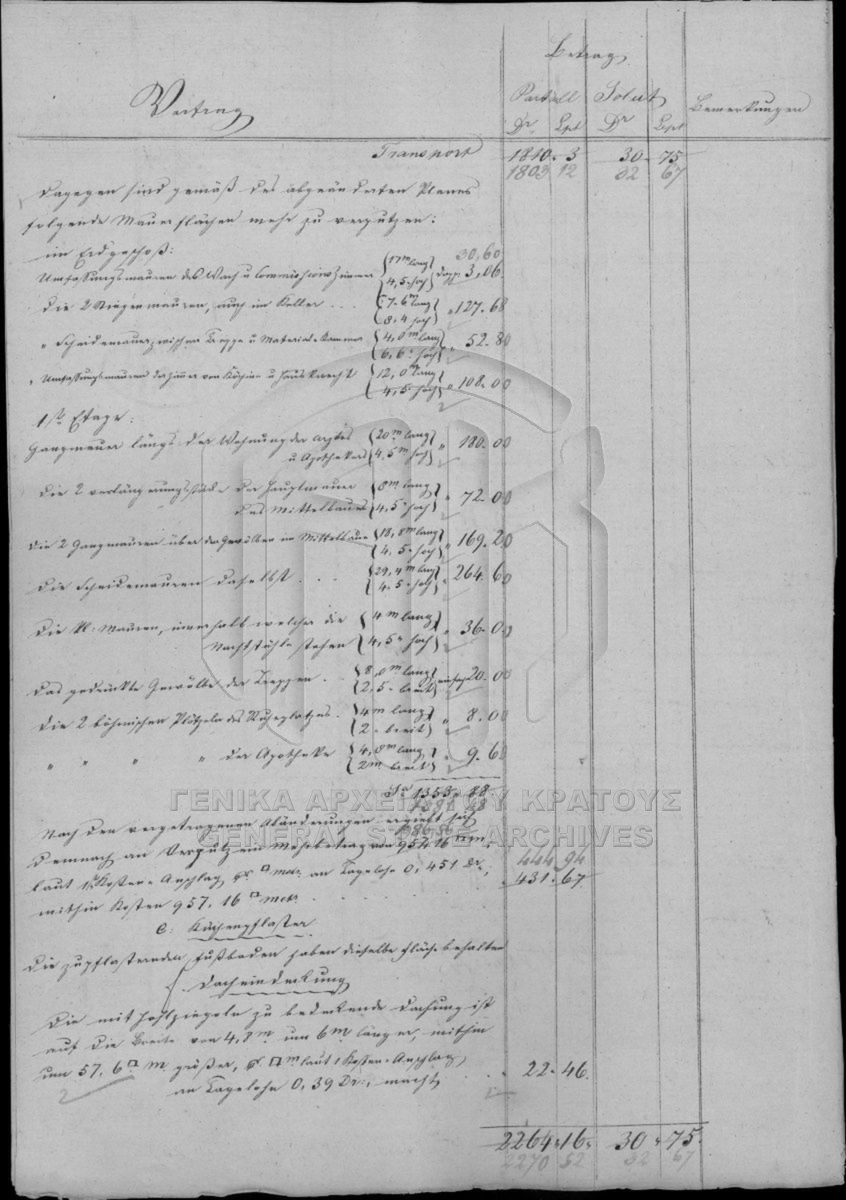 Betrag
Vortrag
Partiell Solut Bemerkungen
Dr. Lpt Dr Lpt
Transport 1810. 3 30. 75
1803 12 32 67
Dagegen sind gemäß des abgeänderten Planes
folgende Mauerflächen mehr zu verputzen:
im Erdgeschoß: 30,60
Umfassungsmauren des Wach u Commissionszimmer {17m lang 4,5. hoch} dopp. 3,06
die 2 Bogenmauren, auch im Keller . . . {7,6m lang 8,4 hoch} " 127. 68
" Scheidemauer zwischen Treppe u Material-Kammer {4,0m lang 6,6. hoch} " 52. 80
" Umfassungsmauren der Zimmer von Köchin u Hausknecht {12,0m lang 4,5. hoch} " 108. 00
1ste Etage:
Gangmauer längs der Wohnung der Arztes {20m lang
u Apothekers 4,5m hoch} " 180. 00
die 2 verlängerungsstücke der Hauptmauer {8m lang
des Mittelbaues 4,5. hoch} " 72. 00
die 2 Gangmauren über der Gewölben im Mittelbaue {18,8m lang 4,5. hoch} " 169. 20
die Scheidemauren daselbst . . . {29,4m lang 4,5. hoch} " 264. 60
die kl: Mauren, innerhalb welcher die {4m lang
Nachtstühle stehen 4,5. hoch} " 36. 00
das gedrückte Gewölbe der Treppen . . {8,0m lang 2,5. breit} einfach 20. 00
die 2 böhmischen Plätzeln des Ruheplatzes . {4m lang 2. breit} " 8. 00
" " " " der Apotheke {4,8m lang 2m breit} " 9. 60
Sa 1353. 88
Nach den vorgetragenen Abänderungen ergiebt sich
demnach an Verputz ein Mehrbetrag von 957,16 □m
laut 1. Kosten-Anschlag pr □ metr. an Tagelohn 0,451 Dr., 444 94
mithin Kosten 957,16 □ metr. . . . 431. 67
e: Küchenpflaster.
die zu pflasternden Fußboden haben dieselbe Fläche behalten
f. Dacheindeckung
die mit Hohlziegeln zu bedeckende Dachung ist
auf die Breite von 4,8m um 6m länger, mithin
um 57,6 □ m größer, pr. □m laut 1 Kosten-Anschlag
an Tagelohn 0,39 Dr., macht . . 22. 46.
2264. 16. 30. 75.
2270 52 32 67
ΓΕΝΙΚΑ ΑΡΧΕΙΑ ΤΟΥ ΚΡΑΤΟΥΣ
GENERAL STATE ARCHIVES